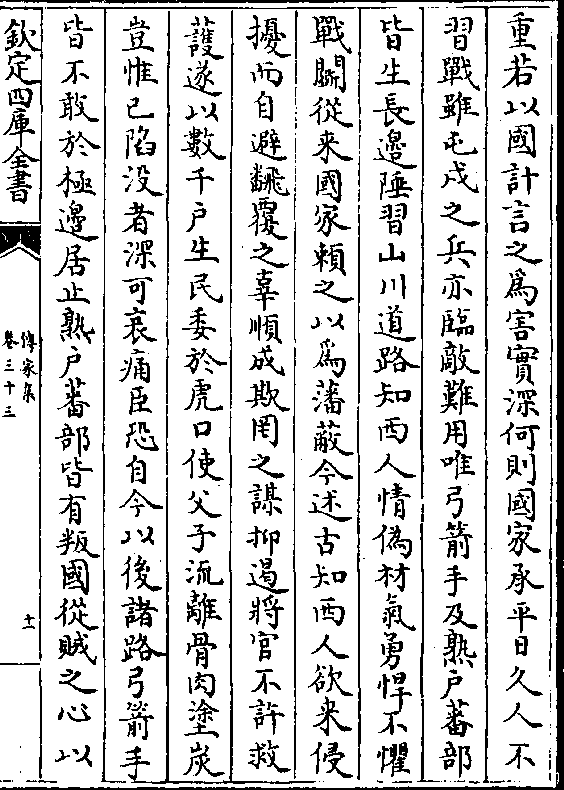 重若以國計言之爲害實深何則國家承平日久人不
習戰雖屯戍之兵亦臨敵難用唯弓箭手及熟户蕃部
皆生長邊陲習山川道路知西人情僞材氣勇悍不懼
戰鬬從來國家賴之以爲藩蔽今述古知西人欲来侵
擾而自避飜覆之辜順成欺罔之謀抑遏將官不許救
䕶遂以數千户生民委於虎口使父子流離骨肉塗炭
豈惟已陷没者深可哀痛臣恐自今以後諸路弓箭手
皆不敢於極邊居止熟户蕃部皆有叛國從賊之心以
欽定四庫全書
傳家集
卷三十三
十一